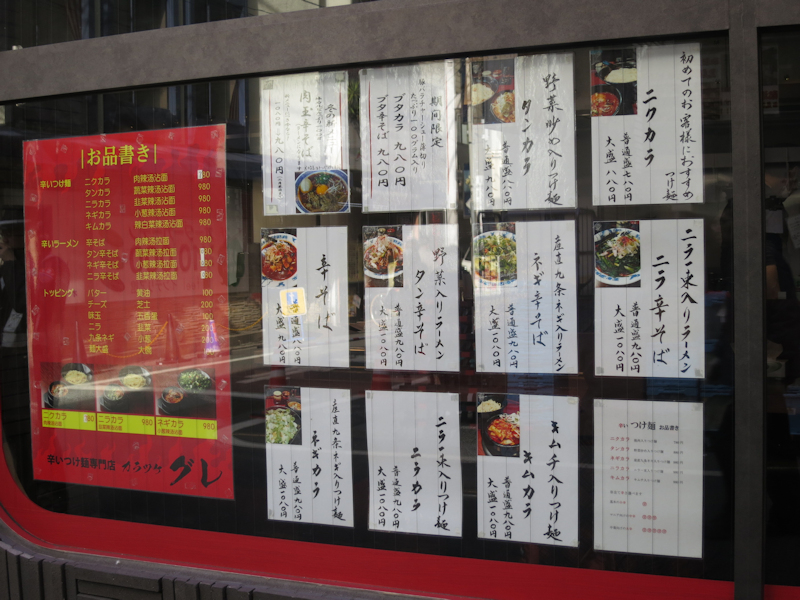 |お品書き|
辛いつけ麺
ニクカラ 肉辣湯沾面 780
タンカラ 蔬菜辣湯沾面 980
ニラカラ 韮菜辣湯沾面 980
ネギカラ 小葱辣湯沾面 980
キムカラ 辣白菜辣湯沾面 980
辛いラーメン
辛そば 肉辣湯拉面 980
タン辛そば 蔬菜辣湯拉面
ネギ辛そば 小葱辣湯拉面
ニラ辛そば 韮菜辣湯拉面
トッピング
バター 黄油 100
チーズ 芝士 200
味玉
ニラ 韮菜
九条ネギ 小葱
麺大盛 大碗
ニクカラ
ニラカラ 980
ネギカラ 980
辛いつけ麺専門店 カラツケ グレ
肉玉辛そば
期間限定
豚バラチャーシュー厚切り
たっぷり100グラム入り
ブタカラ 九八〇円
ブタ辛そば 九八〇円
野菜炒め入りつけ麺
タンカラ
普通盛九八〇円
大盛一〇八〇円
初めてのお客様におすすめ
つけ麺
ニクカラ
普通盛七八〇円
大盛 八八〇円
辛そば
普通盛八八〇円
大盛 九八〇円
野菜入りラーメン
タン辛そば
普通盛九八〇円
大盛一〇八〇円
産直九条ネギ入りラーメン
ネギ辛そば
普通盛九八〇円
大盛一〇八〇円
ニラニ束入りラーメン
ニラ辛そば
普通盛九八〇円
大盛一〇八〇円
産直九条ネギ入りつけ麺
ネギカラ
普通盛九八〇円
大盛一〇八〇円
ニラニ束入りつけ麺
ニラカラ
普通盛九八〇円
大盛一〇八〇円
キムチ入りつけ麺
キムカラ
普通盛九八〇円
大盛一〇八〇円
辛い つけ麺 お品書き
ニクカラ
タンカラ
ニラカラ
ネギカラ
キムカラ